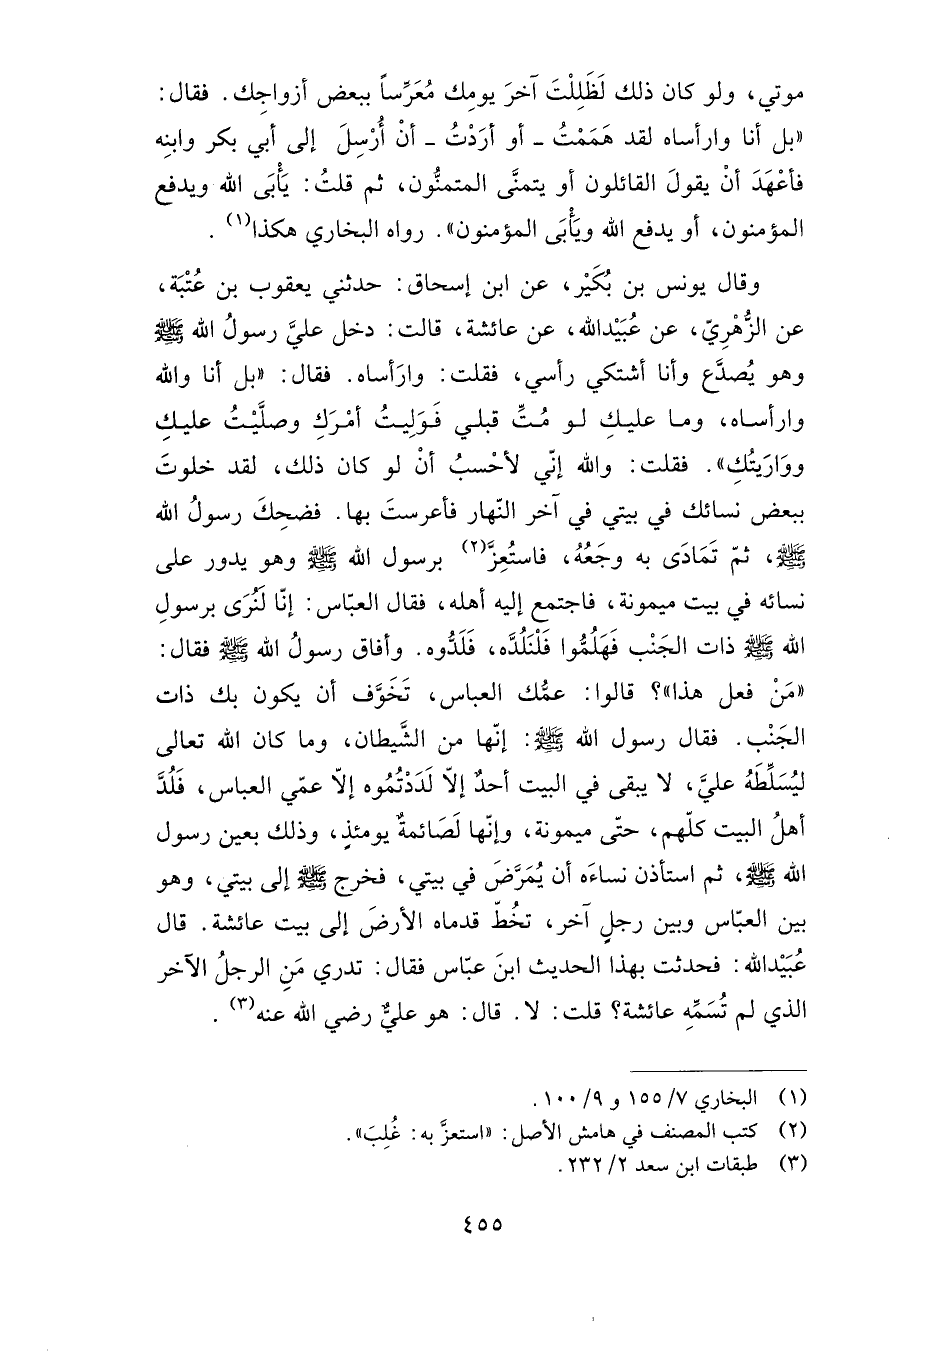 موتي، ولو كان ذلك لَظَلِلْتَ آخرَ يومِك مُعَرِّساً ببعض أزواجِك. فقال:
«بل أنا وارأساه لقد هَمَمْتُ ـ أو أرَدْتُ ـ أنْ أُرْسِلَ إلى أبي بكر وابنِه
فأعْهَدَ أنْ يقولَ القائلون أو يتمنَّى المتمنُّون، ثم قلتُ: يَأْبَى الله ويدفع
المؤمنون، أو يدفع الله ويَأْبَى المؤمنون». رواه البخاري هكذا(١).
وقال يونس بن بُكَيْر، عن ابن إسحاق: حدثني يعقوب بن عُتْبَة،
عن الزُّهْرِيّ، عن عُبَيْدالله، عن عائشة، قالت: دخل عليَّ رسولُ الله ﷺ
وهو يُصدَّع وأنا أشتكي رأسي، فقلت: وارَأساه. فقال: «بل أنا والله
وارأساه، وما عليكِ لو مُتِّ قبلي فَوَلِيتُ أمْرَكِ وصلَّيْتُ عليكِ
ووَارَيتُكِ». فقلت: والله إنّي لأحْسبُ أنْ لو كان ذلك، لقد خلوتَ
ببعض نسائك في بيتي في آخر النّهار فأعرستَ بها. فضحِكَ رسولُ الله
ﷺ، ثمّ تَمَادَى به وجَعُهُ، فاستُعِزَّ(٢) برسول الله ﷺ وهو يدور على
نسائه في بيت ميمونة، فاجتمع إليه أهله، فقال العبّاس: إنّا لَنُرَى برسولِ
الله ﷺ ذات الجَنْب فَهَلُمُّوا فَلْنَلُدَّه، فَلَدُّوه. وأفاق رسولُ الله ﷺ فقال:
«مَنْ فعل هذا»؟ قالوا: عمُّك العباس، تَخَوَّف أن يكون بك ذات
الجَنْب. فقال رسول الله ﷺ: إنّها من الشَّيطان، وما كان الله تعالى
ليُسَلِّطَهُ عليَّ، لا يبقى في البيت أحدٌ إلاّ لَدَدْتُمُوه إلاّ عمّي العباس، فَلُدَّ
أهلُ البيت كلّهم، حتّى ميمونة، وإنّها لَصَائمةٌ يومئذٍ، وذلك بعين رسول
الله ﷺ، ثم استأذن نساءَه أن يُمَرَّضَ في بيتي، فخرج ﷺ إلى بيتي، وهو
بين العبّاس وبين رجلٍ آخر، تخُطّ قدماه الأرضَ إلى بيت عائشة. قال
عُبَيْدالله: فحدثت بهذا الحديث ابنَ عبّاس فقال: تدري مَنِ الرجلُ الآخر
الذي لم تُسَمِّهِ عائشة؟ قلت: لا. قال: هو عليٌّ رضي الله عنه(٣).
(١) البخاري ٧/ ١٥٥ و ٩/ ١٠٠.
(٢) كتب المصنف في هامش الأصل: «استعزَّ به: غُلِبَ».
(٣) طبقات ابن سعد ٢/ ٢٣٢.
٤٥٥